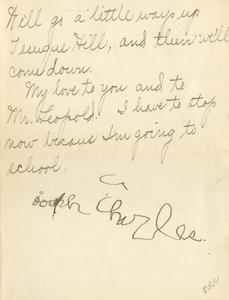 Hill go a little ways up
Tesuque Hill, and then will
come down.
My love to you and to
Mr. Leopold. I have to stop
now becaus I'm going to
school.
Charles.
over